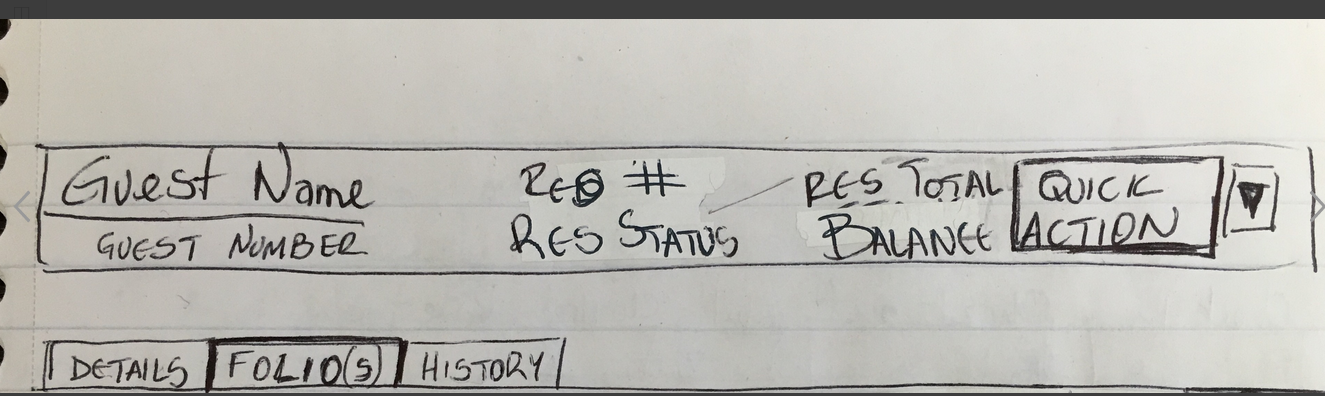 Guest Name
GUEST NUMBER
RES #
RES STATUS
RES TOTAL
BALANCE
QUICK
ACTION
DETAILS
FOLIO(S)
HISTORY